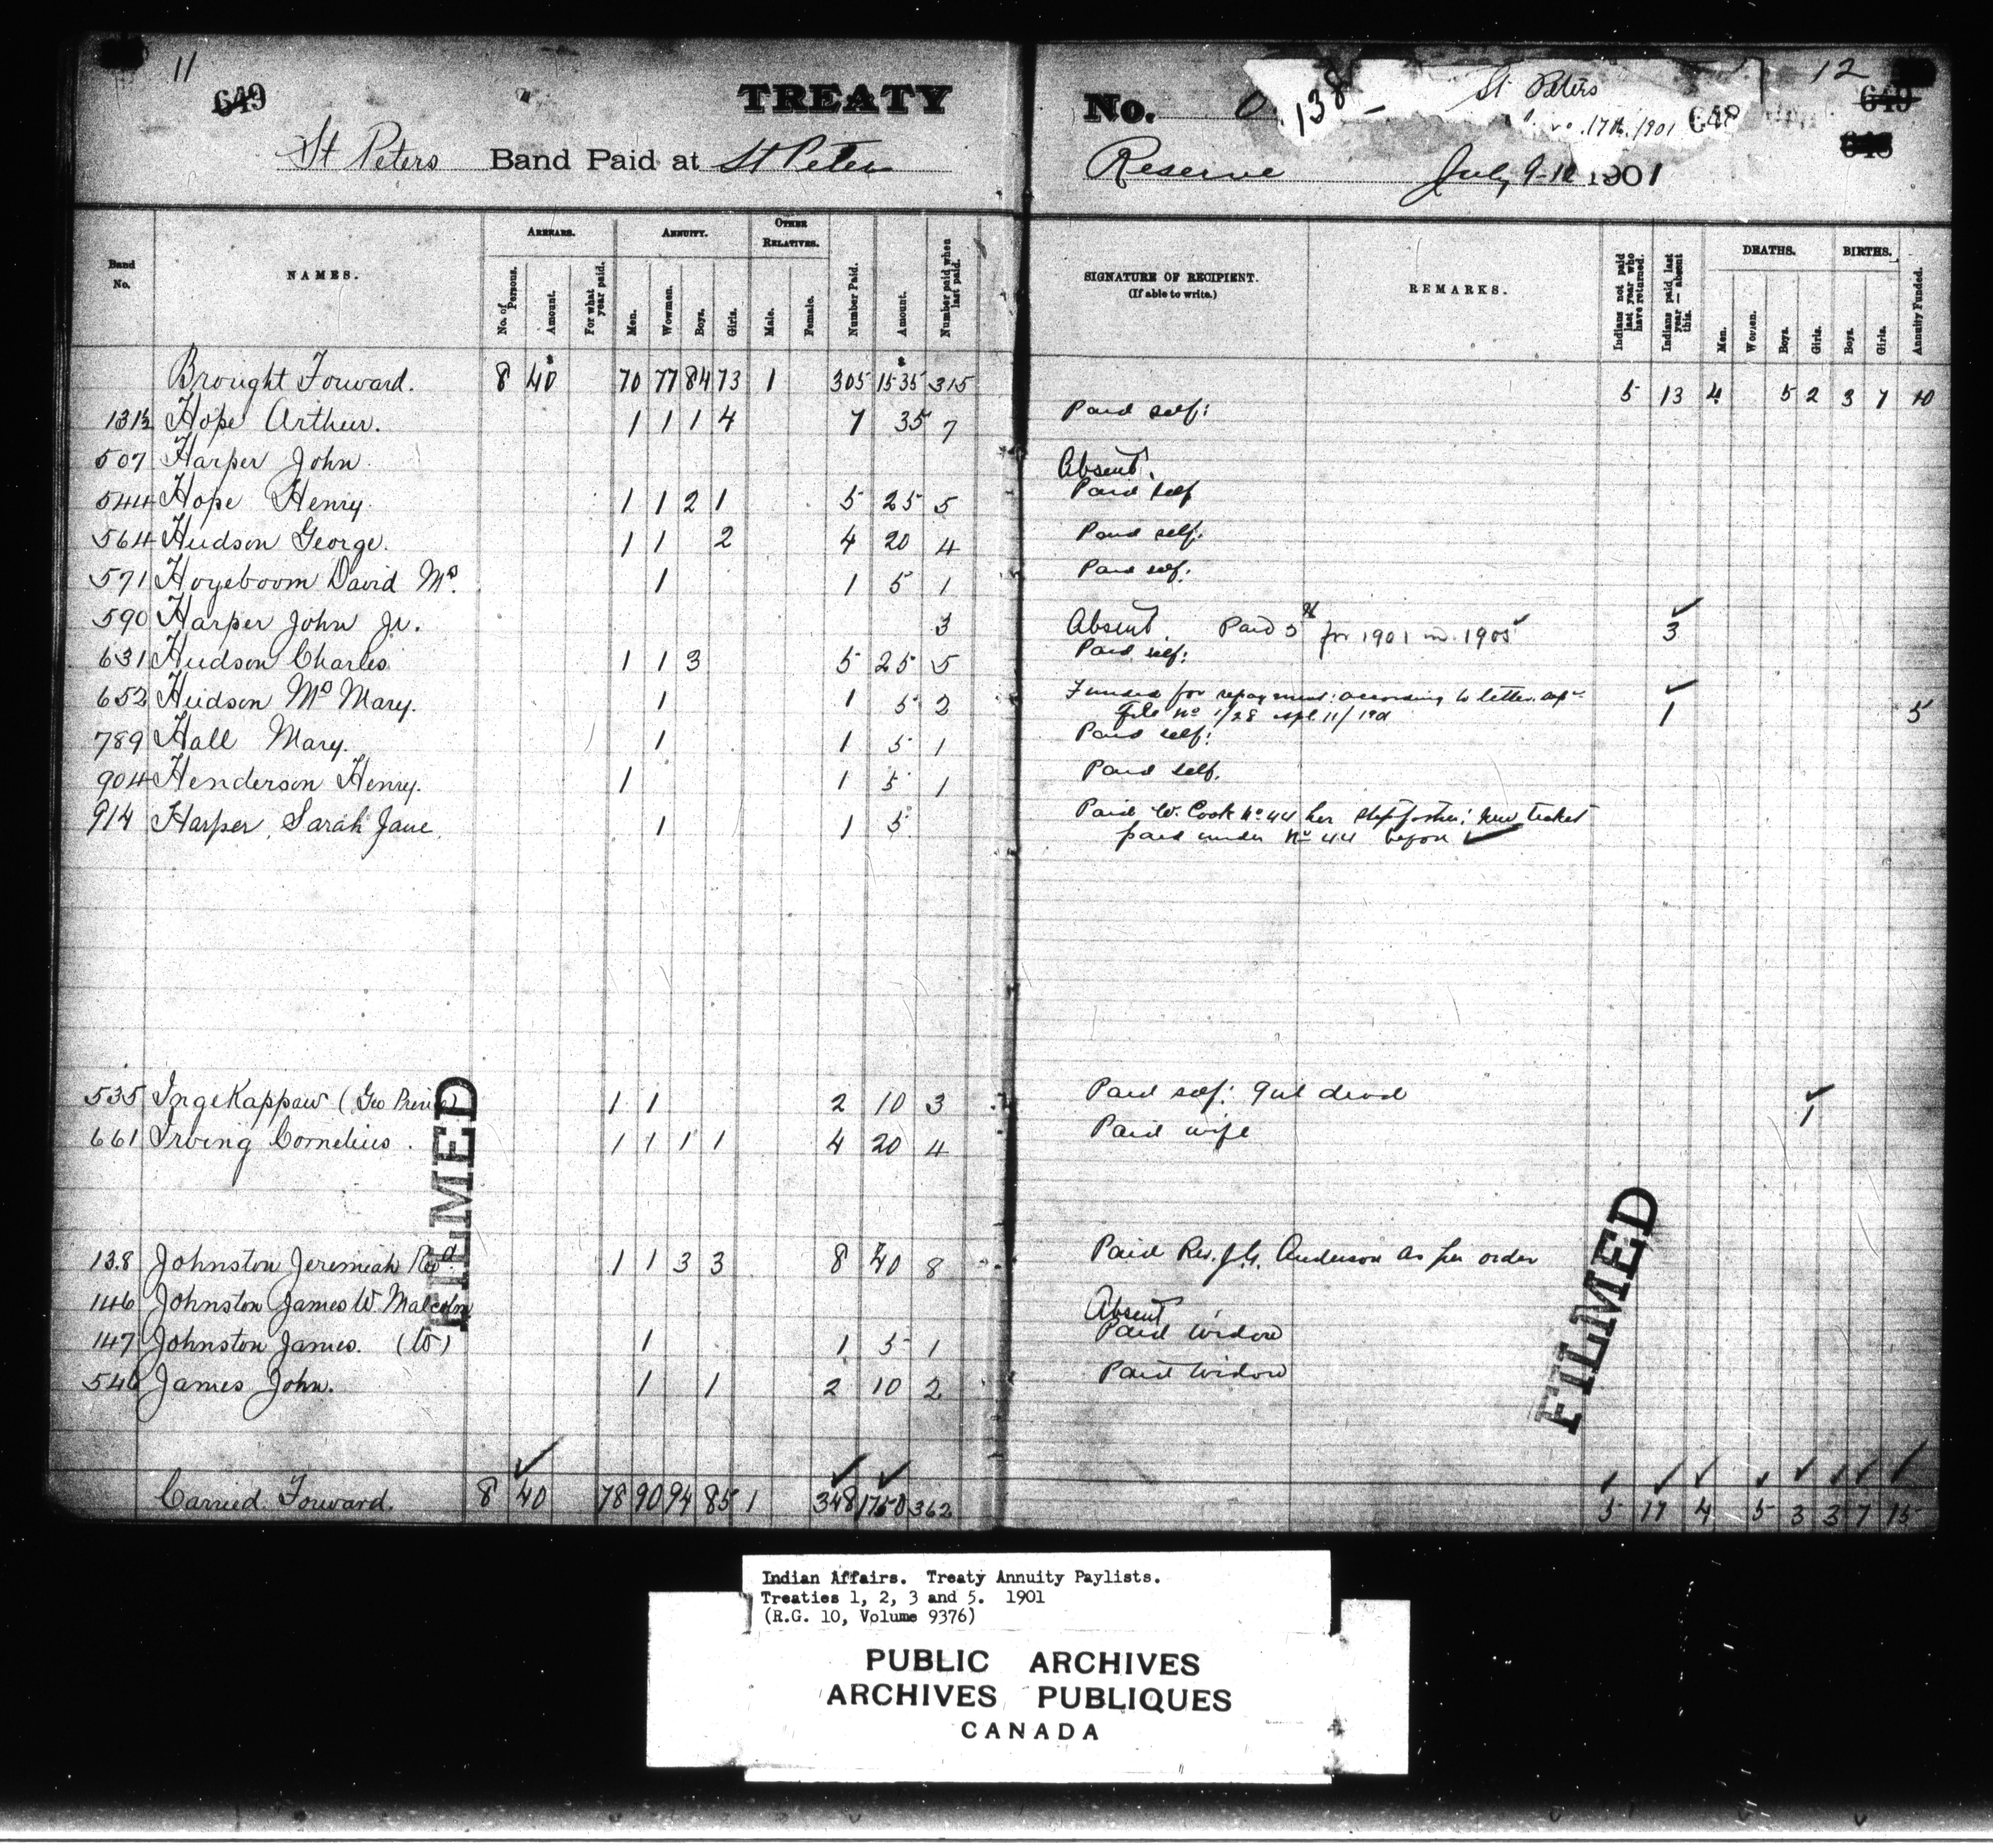 11
649
TREATY
St Peters Band Paid at St Peters
No. 138 -
St Peters
17th, 1901
648
12
649
648
Reserve July 9-12 1901
Band No. NAMES. ARREARS. ANNUITY. OTHER RELATIVES.
No. of Persons. Amount. For what year paid. Men. Women. Boys. Girls. Male. Female. Number Paid. Amount. Number paid when last paid.
SIGNATURE OF RECIPIENT. (If able to write.) REMARKS. Indians not paid last year who have returned. Indians paid last year — absent this. DEATHS. BIRTHS. Annuity Funded.
Men. Women. Boys. Girls. Boys. Girls.
Brought Forward. 8 40 70 77 84 73 1 305 1535 315 5 13 4 5 2 3 7 10
131½ Hope Arthur. 1 1 1 4 7 35 7 Paid self:
507 Harper John Absent.
544 Hope Henry. 1 1 2 1 5 25 5 Paid self
564 Hudson George. 1 1 2 4 20 4 Paid self.
571 Hogeboom David Mrs. 1 1 5 1 Paid self.
590 Harper John Jr. 3 Absent. Paid 5 for 1901 in 1905 3
631 Hudson Charles 1 1 3 5 25 5 Paid self:
652 Hudson Mrs Mary. 1 1 5 2 Funded for repayment according to letter
File No 1/28 11/ 1 5
789 Hall Mary. 1 1 5 1 Paid self:
904 Henderson Henry. 1 1 5 1 Paid self.
914 Harper, Sarah Jane. 1 1 5 Paid W. Cook No 44 her stepfather; new ticket
paid under No 44 before
535 Ingekappaw (Geo Prince) 1 1 2 10 3 Paid self: girl dead 1
661 Irving Cornelius. 1 1 1 1 4 20 4 Paid wife
138 Johnston Jeremiah Revd. 1 1 3 3 8 40 8 Paid Rev. J.G. Anderson as per order
146 Johnston James W. Malcolm Absent
147 Johnston James. (W) 1 1 5 1 Paid Widow
546 James John. 1 1 2 10 2 Paid Widow
Carried Forward. 8 40 78 90 94 85 1 348 1750 362 5 17 4 5 3 3 7 15
FILMED
FILMED
Indian Affairs. Treaty Annuity Paylists.
Treaties 1, 2, 3 and 5. 1901
(R.G. 10, Volume 9376)
PUBLIC ARCHIVES
ARCHIVES PUBLIQUES
CANADA